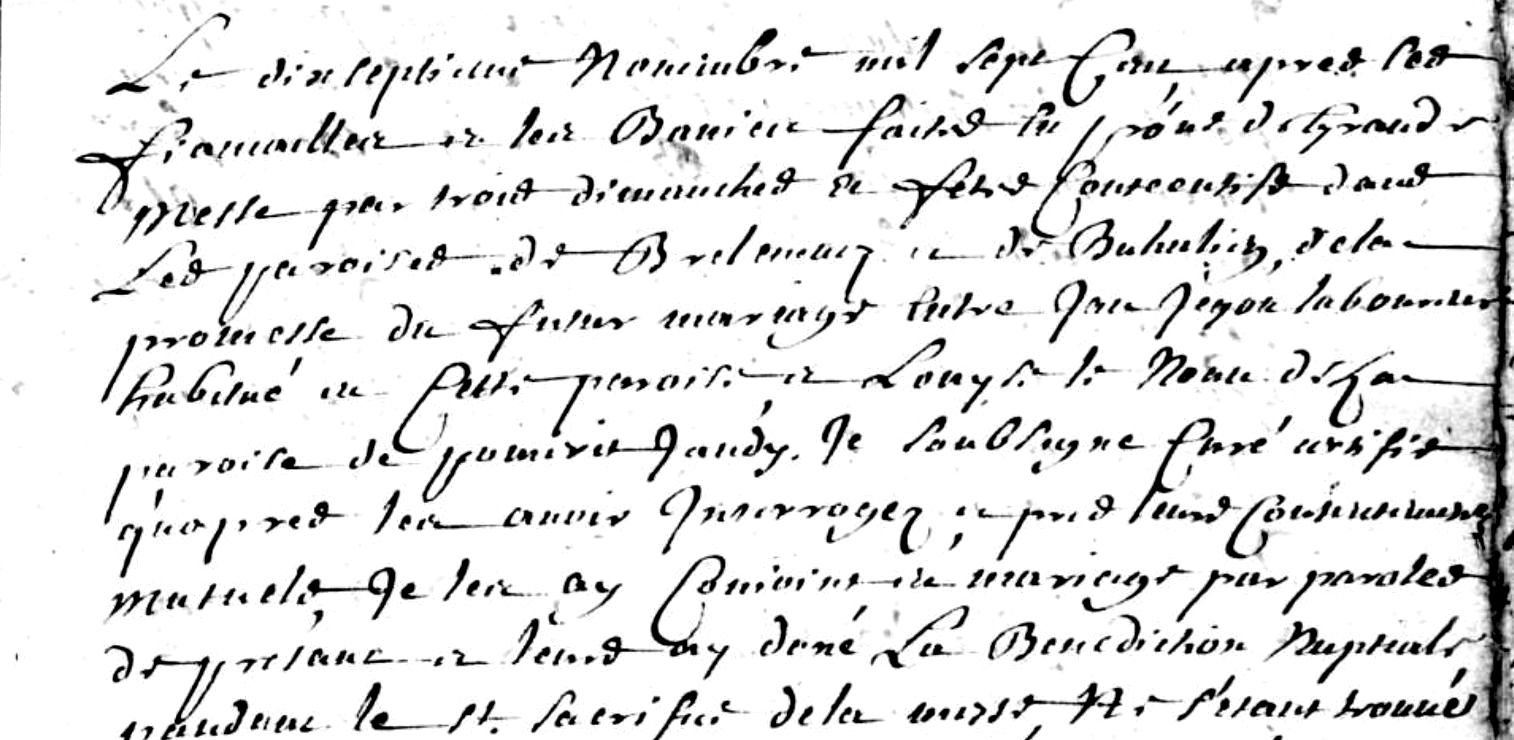 Le dixseptieme Novembre mil sept Cent, apres les
fiancailles et les Banies faites en prône de la grande
Messe par trois dimanches et fêtes Consecutifs dans
Les paroises de Brelemanz et de Buhulien, de la
promesse du futur mariage entre Jan Jégou laboureur
habitué en Cette paroise, et Louyse le Nou de la
paroise de pomerit Jaudy. Je soubsigne Curé certifie
qu'apres les avoir Interrogez, et pris leurs Consentements
Mutuels, Je les ay Conioint en mariage par paroles
de présant et leurs ay doné La Benediction Nuptiale
pandant le st. sacrifice de la messe, Ne s'étant trouvés